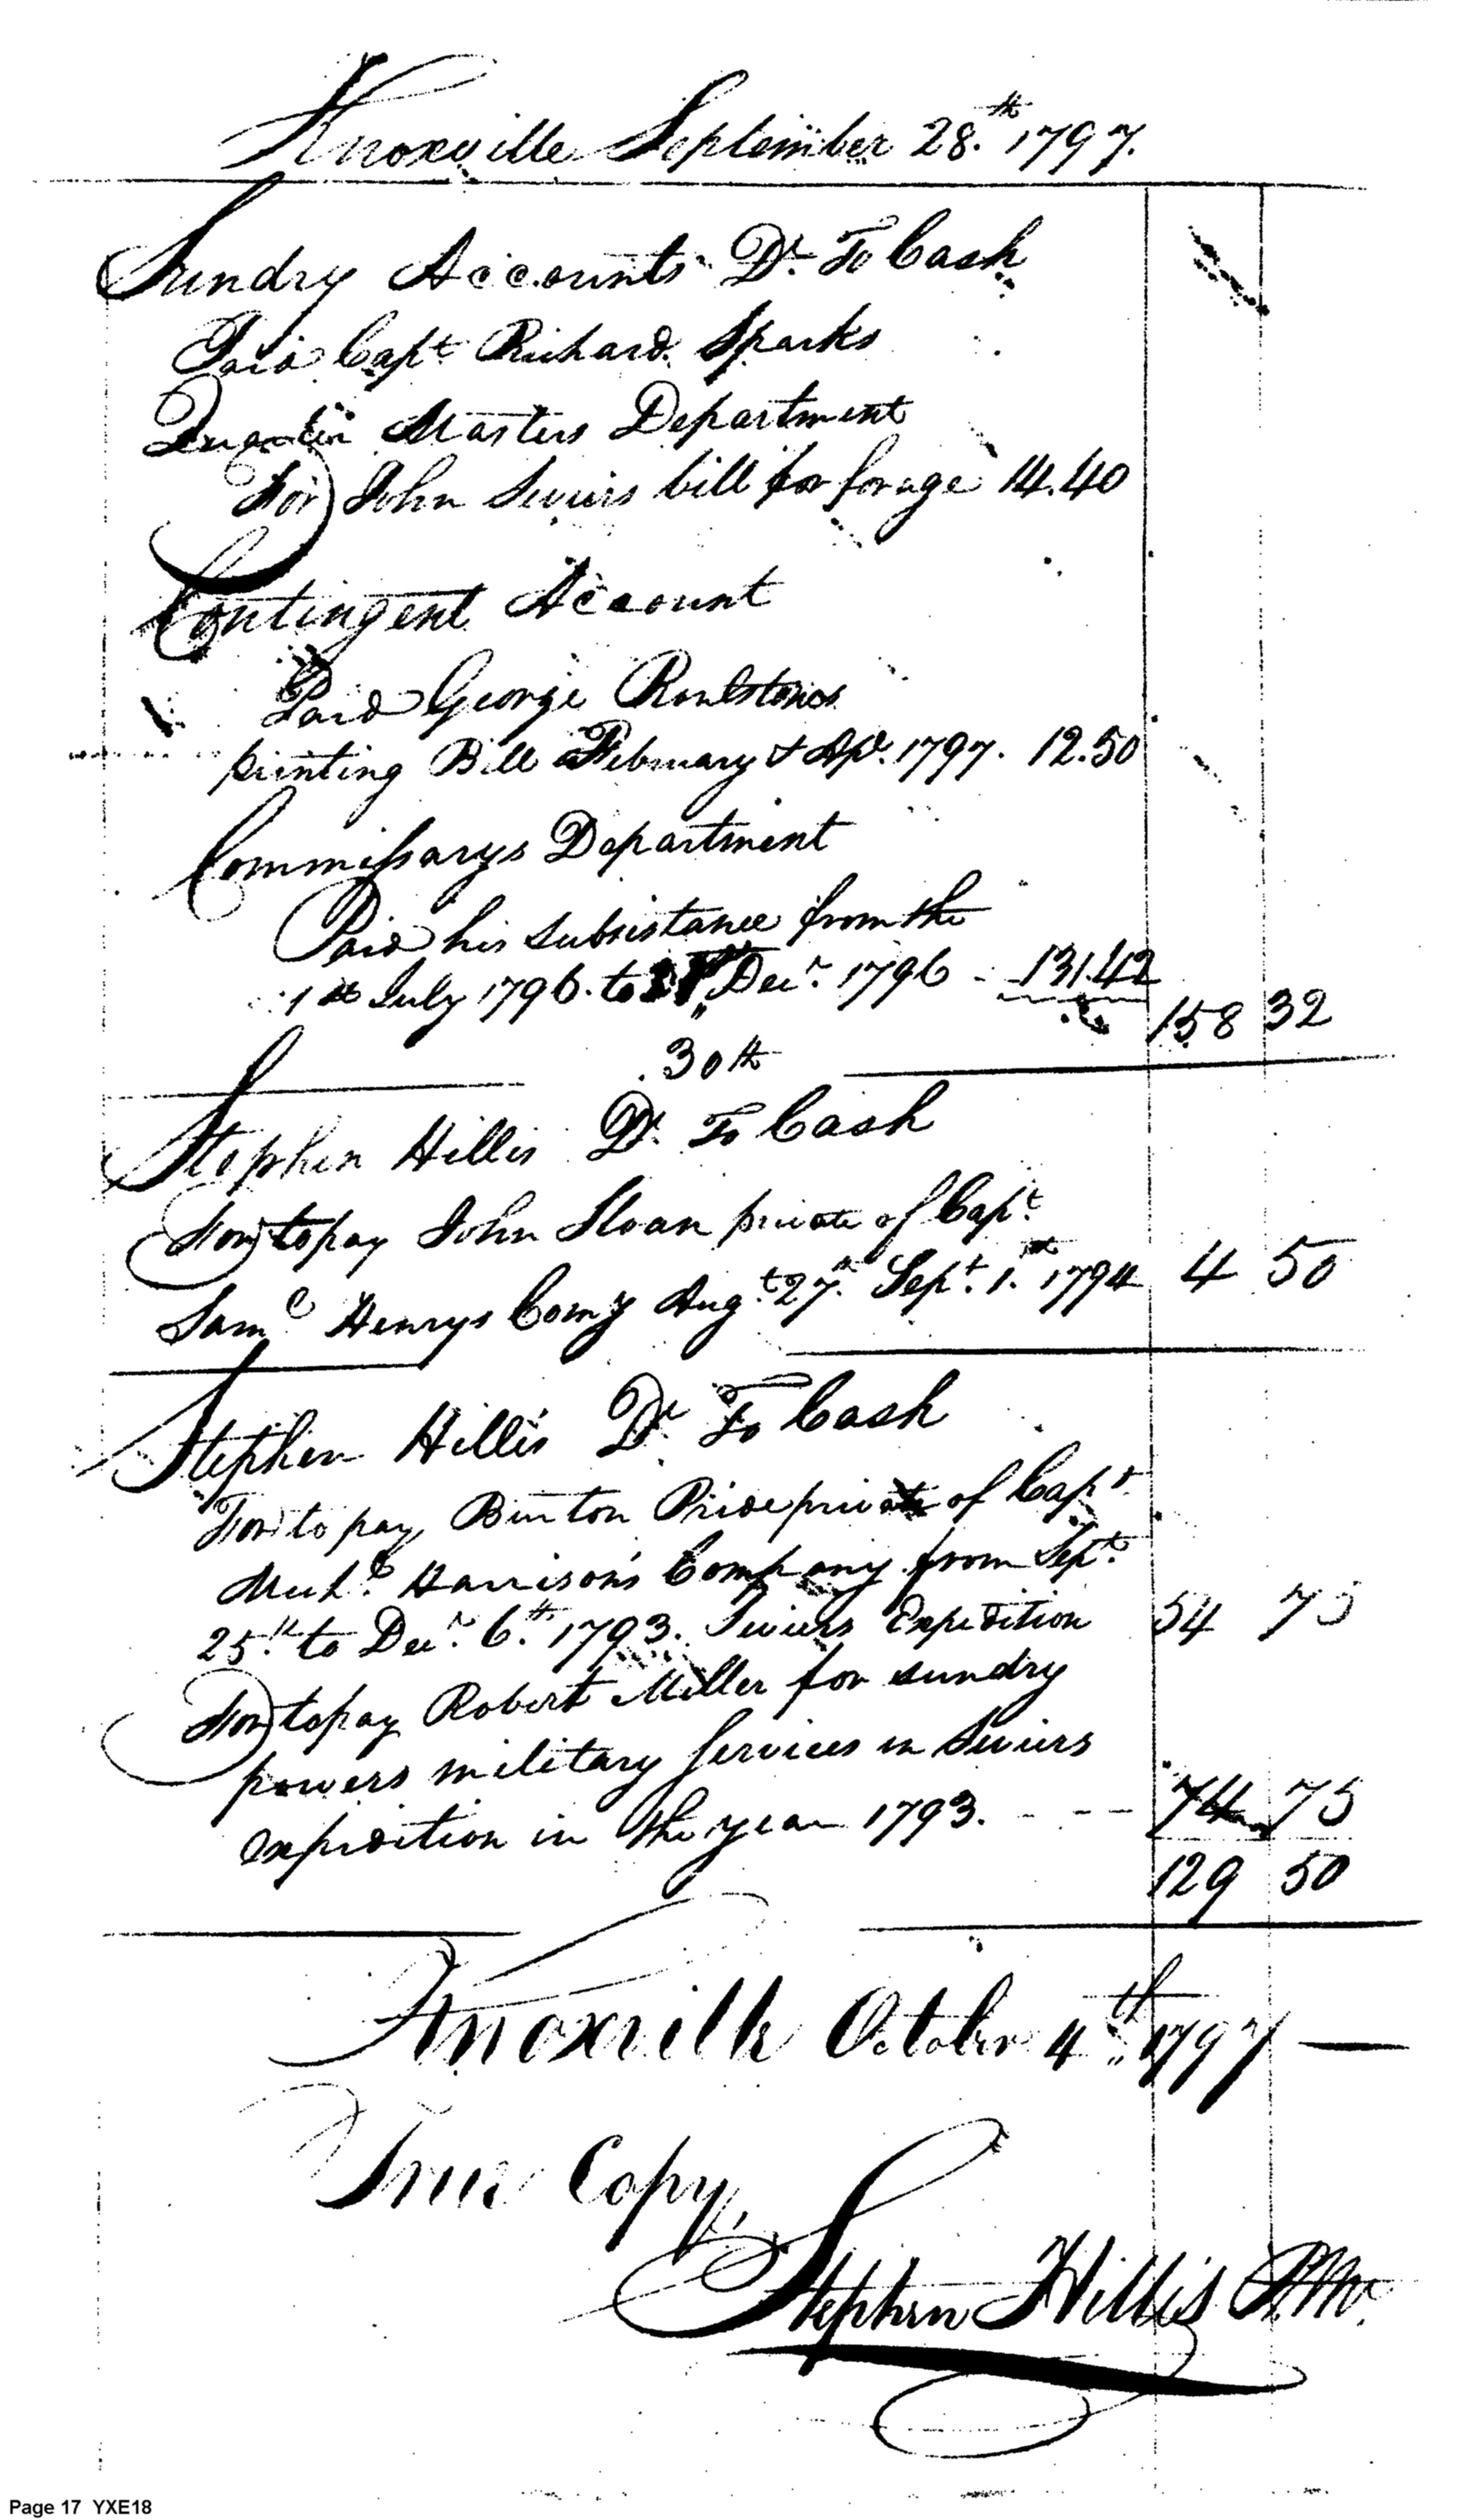 Knoxville September 28.th 1797.
Sundry Accounts Dr. To Cash
Paid Capt Richard Sparks
Quarter Masters Department
For John Seviers bill for forage 14.40
Contingent Account
Paid George Roulstones
printing Bill February & Apl. 1797. 12.50
Commissarys Department
Paid his subsistance from the
1st July 1796. to 31st Decr. 1796 - 131.42
158 32
30th
Stephen Hillis Dr. To Cash
For to pay John Sloan private of Capt.
Saml Henrys Comy Augt. 27th. Sept. 1.st 1794 4 50
Stephen Hillis Dr To Cash
For to pay Burton Pride private of Capt
Michl. Harrison's Company from Sept.
25th. to Decr. 6.th 1793. Seviers Expedition 54 75
For to pay Robert Miller for sundry
powers military services in Seviers
expidition in the year 1793. - - - 74 75
129 50
Knoxville October 4th 1797 —
True Copy,
Stephen Hillis P.M.
Page 17 YXE18